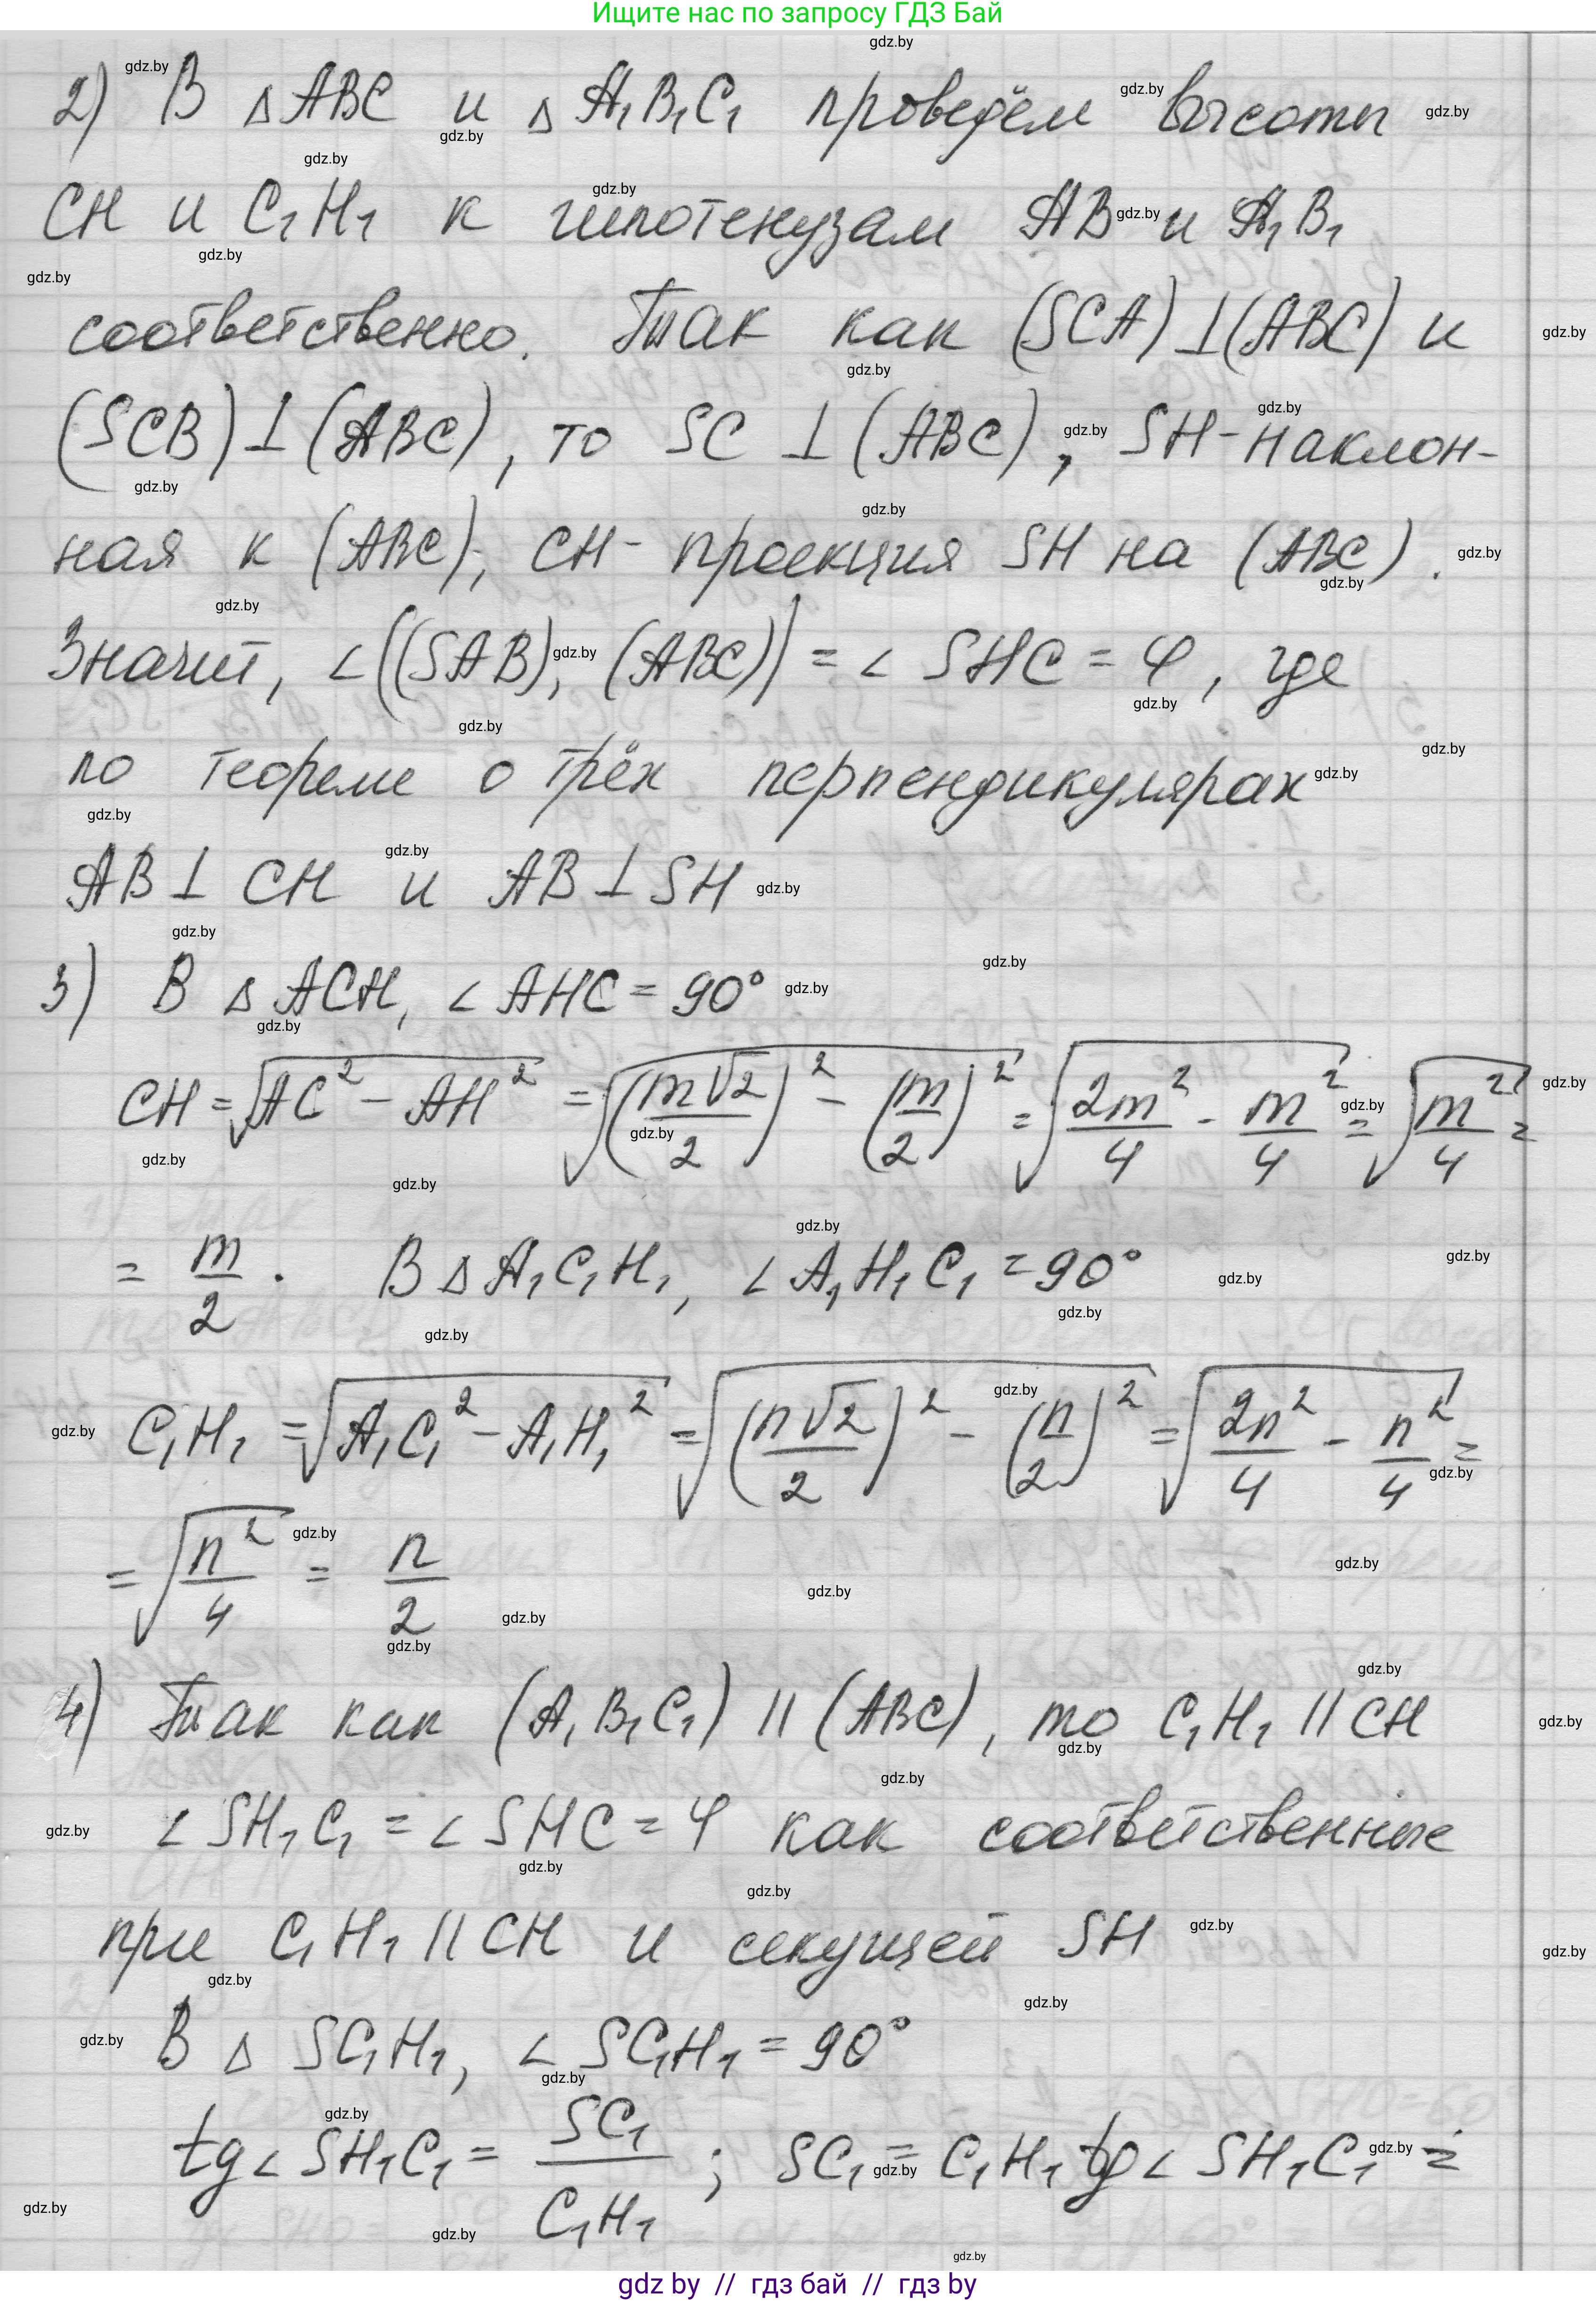 Ищите нас по запросу ГДЗ Бай
2) В △ABC и △A₁B₁C₁ проведём высоты
CH и C₁H₁ к гипотенузам AB и A₁B₁
соответственно. Так как (SCA)⊥(ABC) и
(SCB)⊥(ABC), то SC ⊥ (ABC), SH - наклон-
ная к (ABC), CH - проекция SH на (ABC).
Значит, ∠((SAB), (ABC)) = ∠ SHC = φ, где
по теореме о трёх перпендикулярах
AB ⊥ CH и AB ⊥ SH
3) В △ACH, ∠AHC = 90°
CH = √(AC² - AH²) = √((m√2/2)² - (m/2)²) = √(2m²/4 - m²/4) = √(m²/4) =
= m/2. В △A₁C₁H₁, ∠A₁H₁C₁ = 90°
C₁H₁ = √(A₁C₁² - A₁H₁²) = √((n√2/2)² - (n/2)²) = √(2n²/4 - n²/4) =
= √(n²/4) = n/2
4) Так как (A₁B₁C₁) || (ABC), то C₁H₁ || CH
∠SH₁C₁ = ∠SHC = φ как соответственные
при C₁H₁ || CH и секущей SH
В △ SC₁H₁, ∠ SC₁H₁ = 90°
tg∠ SH₁C₁ = SC₁/C₁H₁ ; SC₁ = C₁H₁ tg∠ SH₁C₁ =
gdz by // гдз бай // гдз by